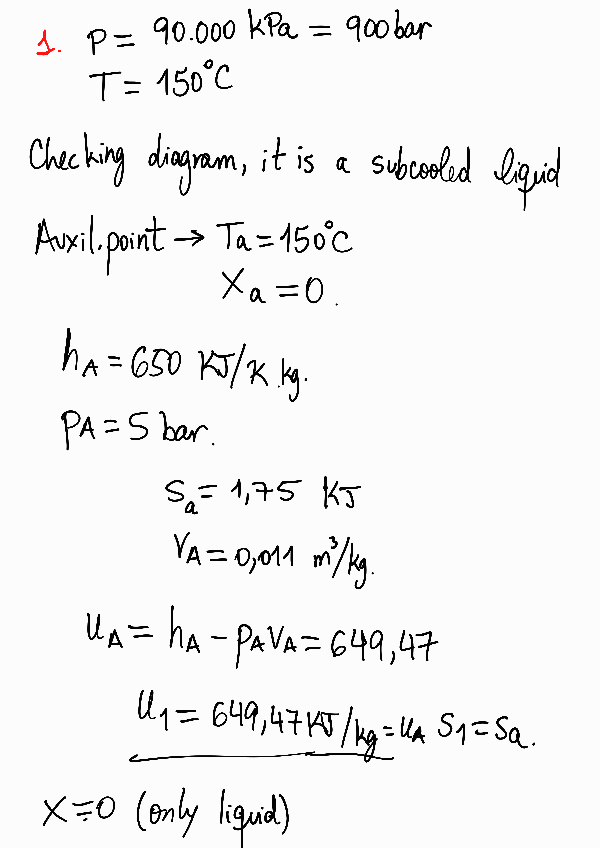 1. P = 90.000 kPa = 900 bar
T = 150°C
Checking diagram, it is a subcooled liquid
Auxil. point → Ta = 150°C
Xa = 0.
hA = 650 KJ/K kg.
PA = 5 bar.
Sa = 1,75 KJ
VA = 0,011 m³/kg.
uA = hA - pAVA = 649,47
u1 = 649,47 KJ/kg = uA S1 = Sa.
X = 0 (only liquid)